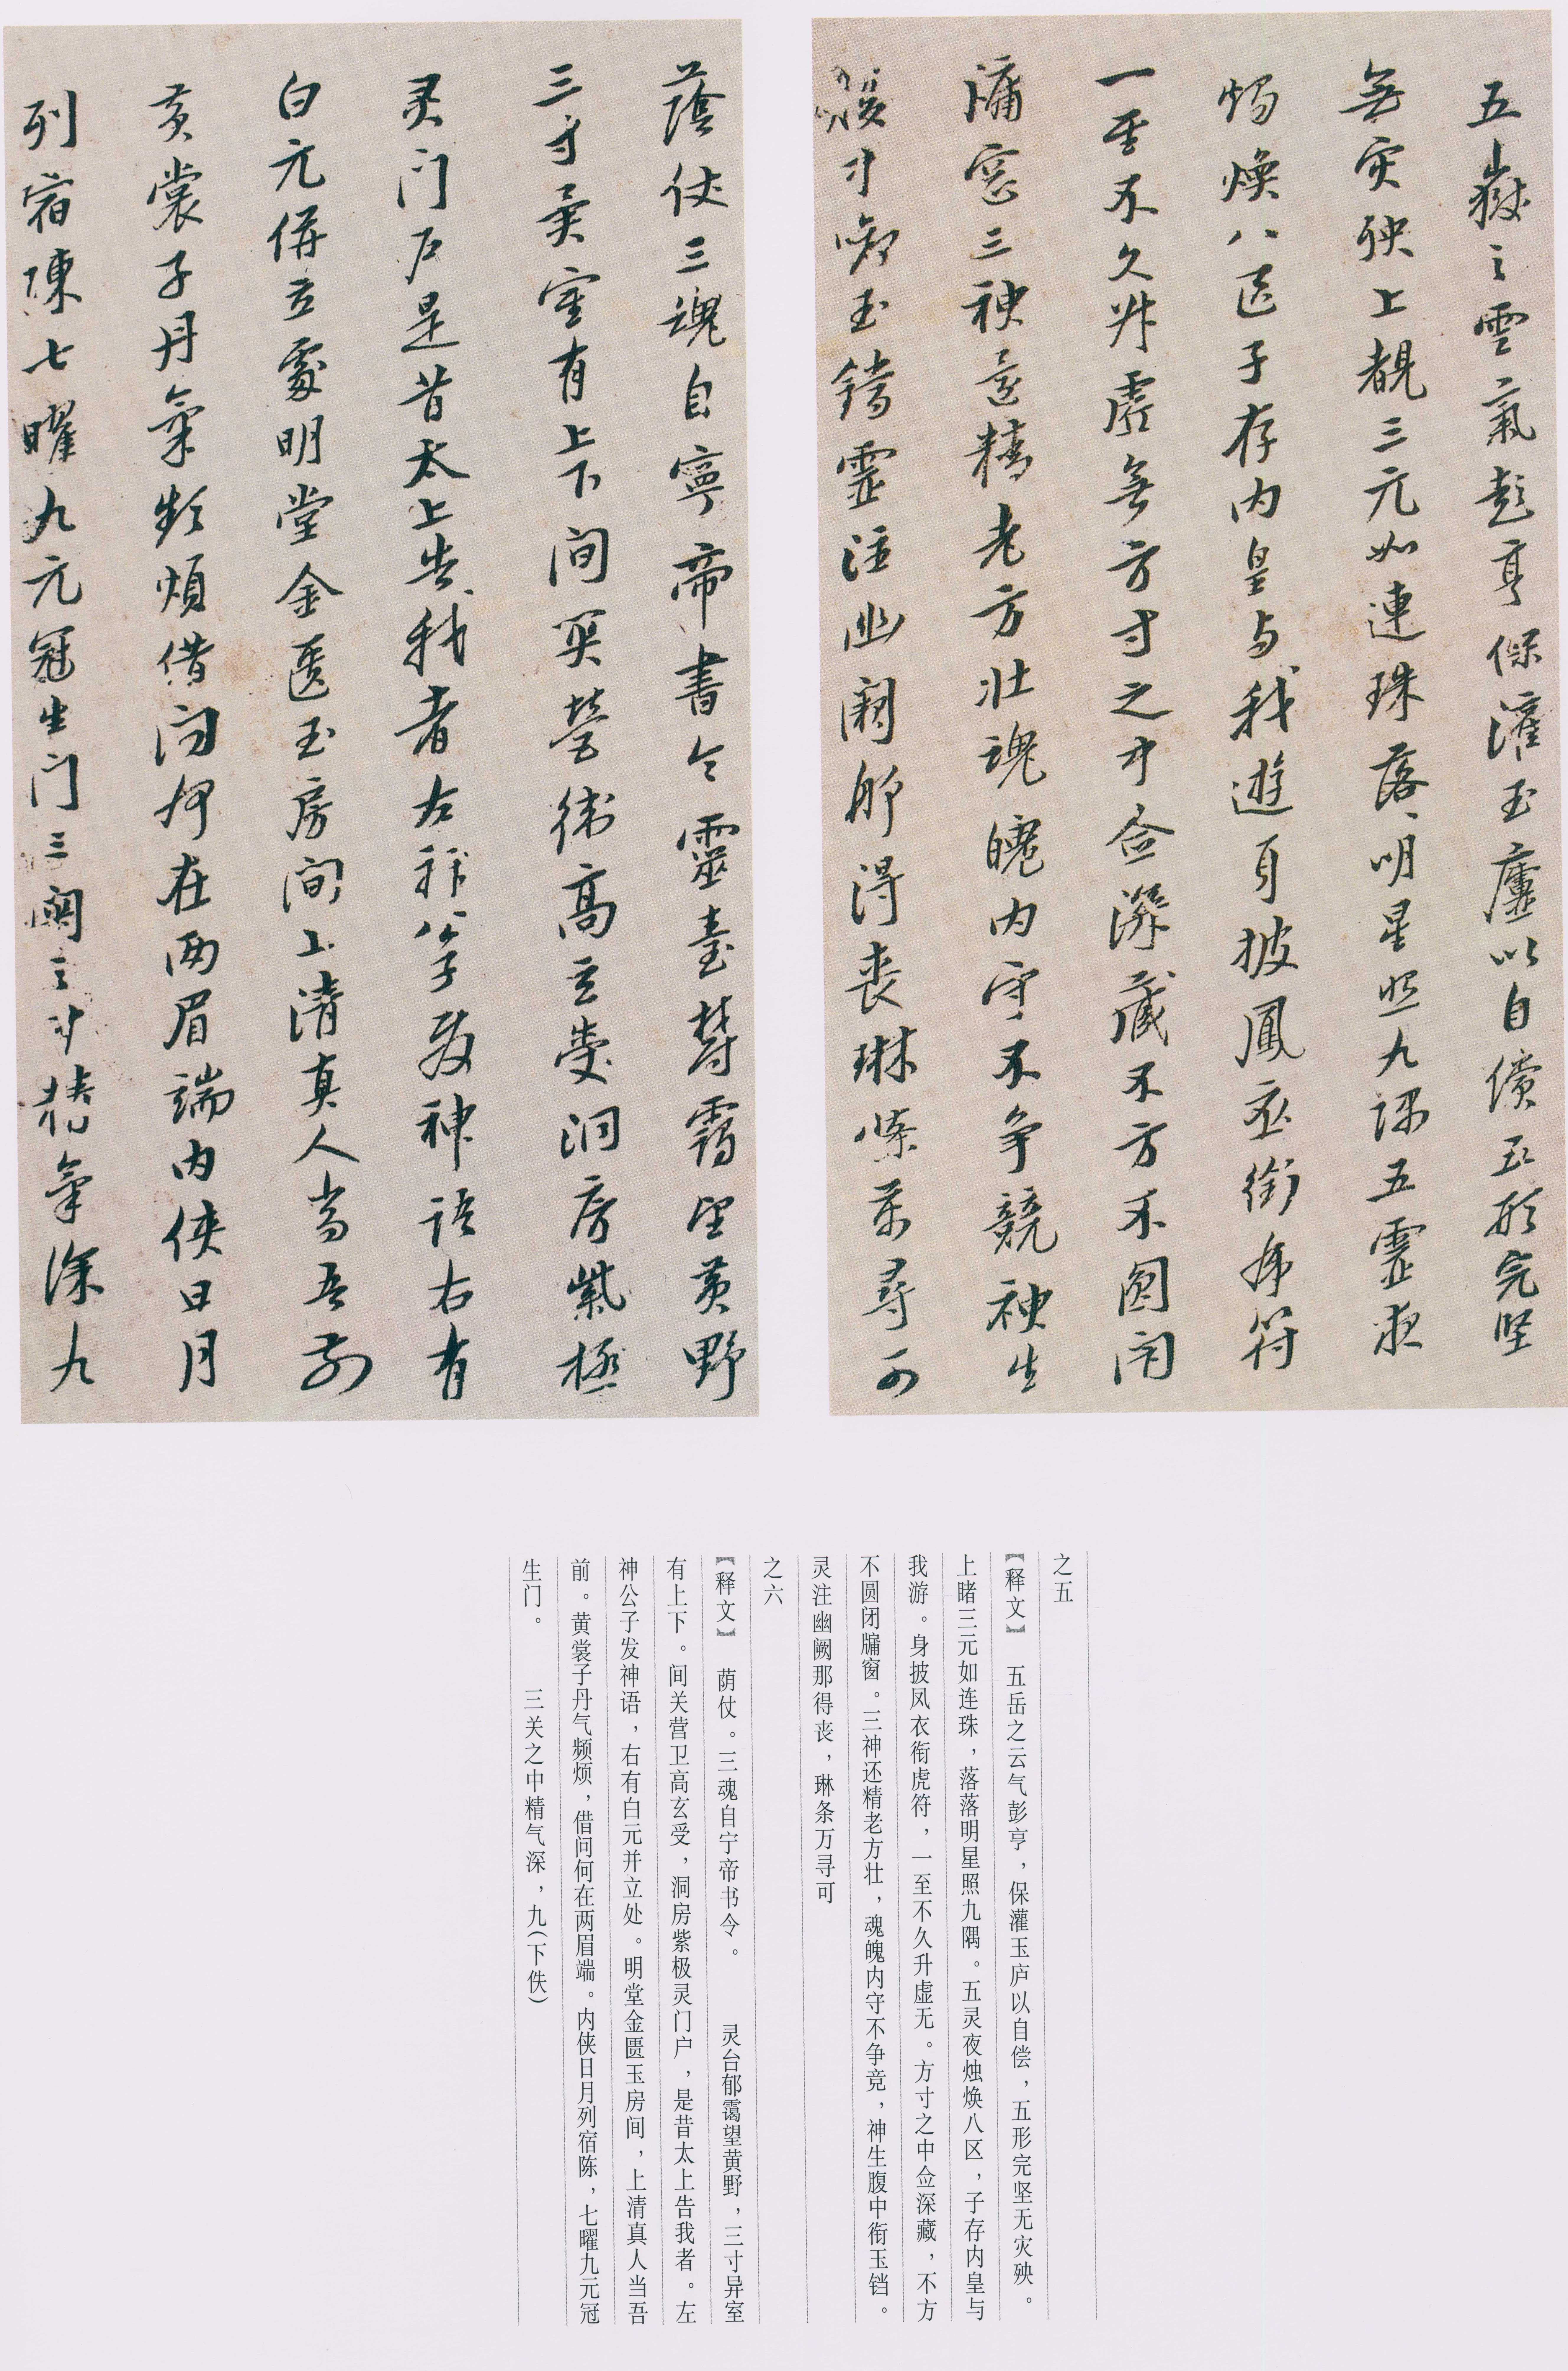 五嶽之雲氣彭亨保灌玉廬以自償五形完坚
無灾殃上覩三元如連珠落落明星照九隅五靈夜
燭煥八區子存内皇与我遊身披鳳衣銜虎符
一至不久升虛無方寸之中佥深藏不方不圓闭
牖窓三神還精老方壮魂魄内守不争競神生
腹中銜玉鐺靈注幽闕那得丧琳條萬尋可
蔭仗三魂自寧帝書令靈臺欝霭望黄野
三寸異室有上下間関營衛高玄受洞房紫極
灵门户是昔太上告我者左神公子发神語右有
白元併立處明堂金匱玉房间上清真人当吾前
黄裳子丹氣頻煩借问何在两眉端内侠日月
列宿陳七曜九元冠生门三関之中精氣深九
之五
【释文】 五岳之云气彭亨，保灌玉庐以自偿，五形完坚无灾殃。
上睹三元如连珠，落落明星照九隅。五灵夜烛焕八区，子存内皇与
我游。身披凤衣衔虎符，一至不久升虚无。方寸之中佥深藏，不方
不圆闭牖窗。三神还精老方壮，魂魄内守不争竞，神生腹中衔玉铛。
灵注幽阙那得丧，琳条万寻可
之六
【释文】 荫仗。三魂自宁帝书令。 灵台郁霭望黄野，三寸异室
有上下。间关营卫高玄受，洞房紫极灵门户，是昔太上告我者。左
神公子发神语，右有白元并立处。明堂金匮玉房间，上清真人当吾
前。黄裳子丹气频烦，借问何在两眉端。内侠日月列宿陈，七曜九元冠
生门。 三关之中精气深，九（下佚）